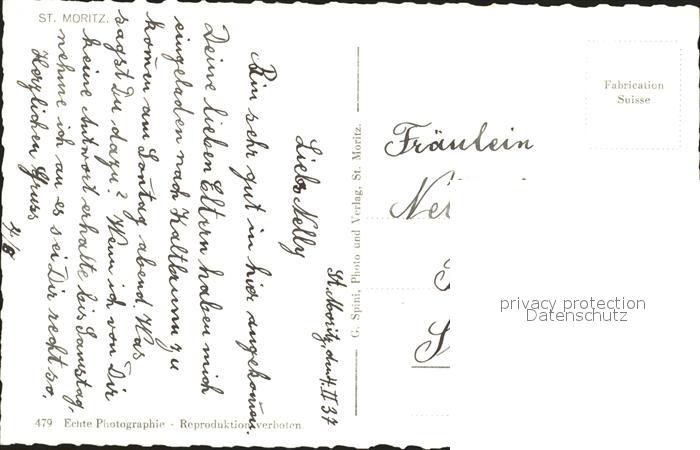 ST. MORITZ.
St. Moritz, den 4. II 37
Liebe Nelly
Bin sehr gut in hier angekomen.
Deine lieben Eltern haben mich
eingeladen nach Kaltbrunn zu
komen am Sontag abend. Was
sagst Du dazu? Wenn ich von Dir
keine Antwort erhalte bis Samstag,
nehme ich an es sei Dir recht so.
Herzlichen Gruss
479 Echte Photographie - Reproduktion verboten
G. Spini, Photo und Verlag, St. Moritz.
Fabrication
Suisse
Fräulein
privacy protection
Datenschutz